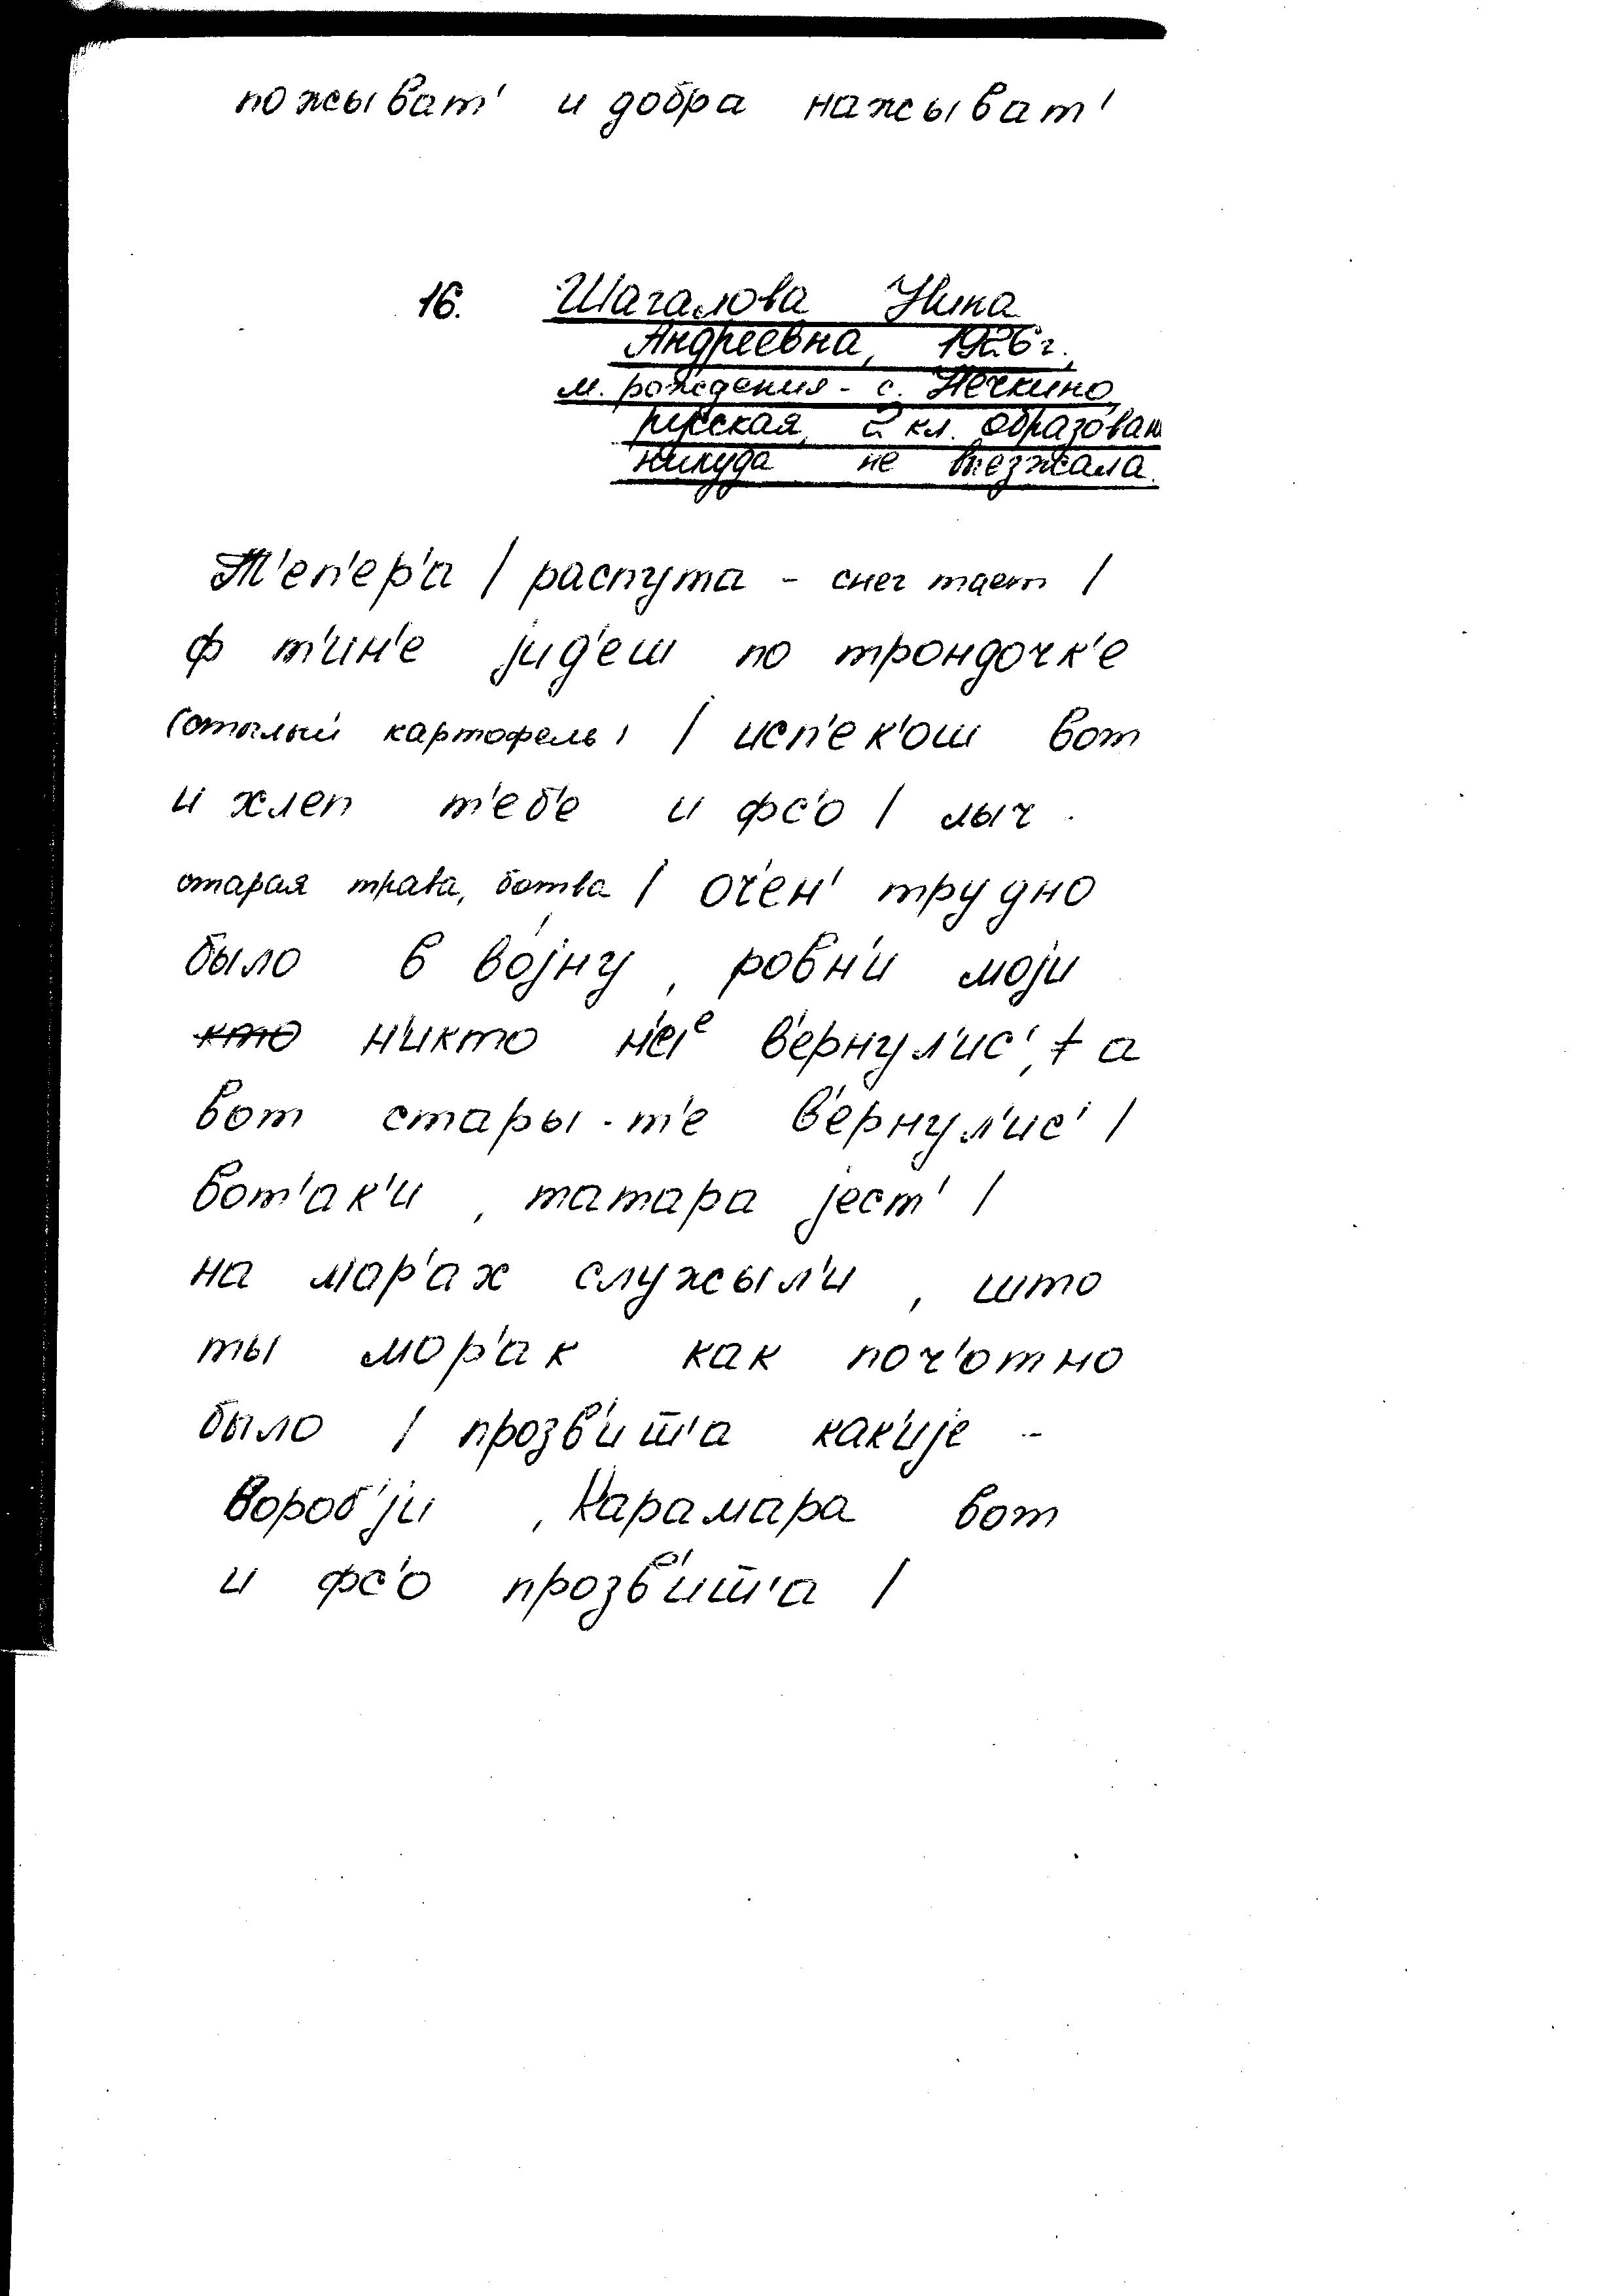 пожыват' и добра нажыват'
16. Шагалова Нина
Андреевна, 1926 г.,
м. рождения - с. Нечкино,
русская, 2 кл. образован
никуда не выезжала.
Т'еп'ер'а / распута - снег тает /
ф т'ин'е jид'еш по трондочк'е
(отылый картофель) / исп'ек'ош вот
и хлеп т'еб'е и фс'о / лыч -
старая трава, ботва / оч'ен' трудно
было в војну, ровн'и моји
кто н'икто н'е в'ернул'ис', а
вот стары-т'е в'ернул'ис' /
вот'ак'и, татара јест' /
на мор'ах служыл'и, што
ты мор'ак как поч'отно
было / прозв'ит'а как'ије -
Вороб'ји, Карамара вот
и фс'о прозв'ит'а /